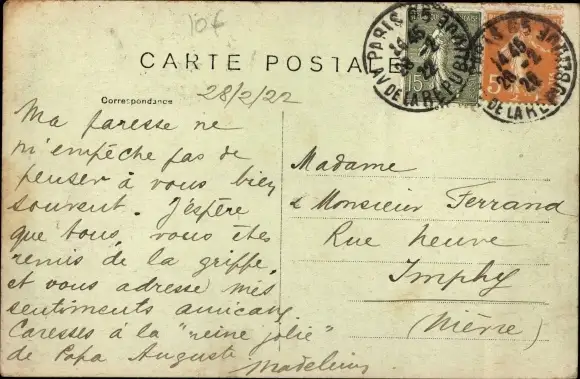 10f
CARTE POSTALE
Correspondance
28/2/22
Ma paresse ne
m'empêche pas de
penser à vous bien
souvent. J'espère
que tous, vous êtes
remis de la grippe,
et vous adresse mes
sentiments amicaux
Caresses à la "reine jolie"
de Papa Auguste
Madeleine
Madame
& Monsieur Ferrand
Rue neuve
Imphy
(Nièvre)
PARIS
AV DE LA REPUB
15
5
14 45
DE LA RE